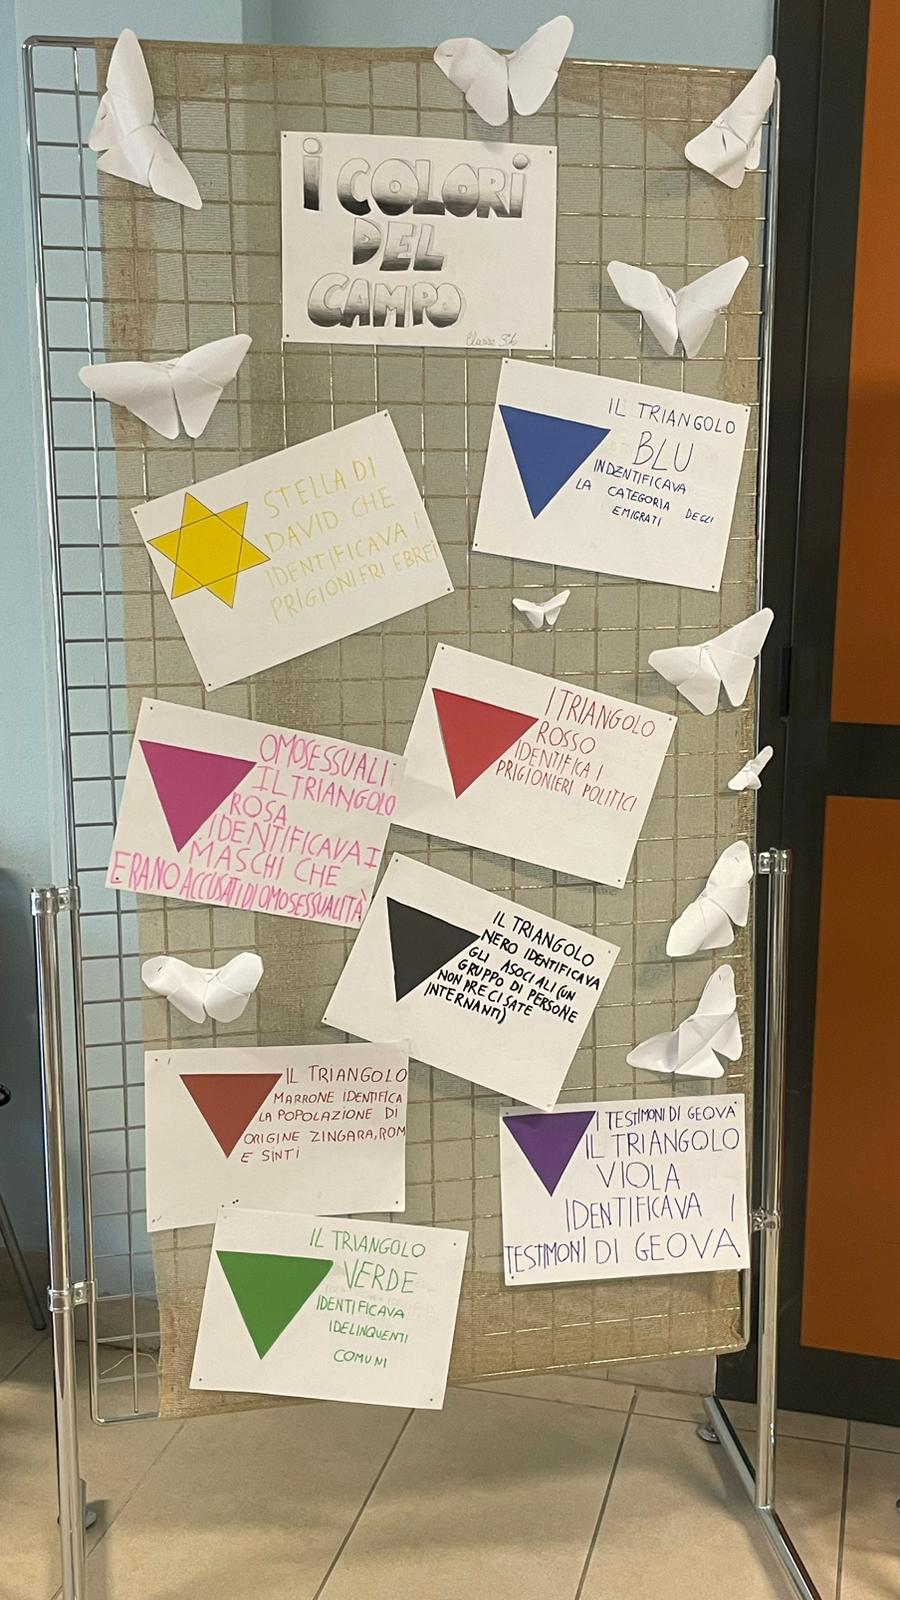 I COLORI
DEL
CAMPO
Classe 5A
IL TRIANGOLO
BLU
INDENTIFICAVA
LA CATEGORIA DEGLI
EMIGRATI
STELLA DI
DAVID CHE
IDENTIFICAVA I
PRIGIONIERI EBREI
I TRIANGOLO
ROSSO
IDENTIFICA I
PRIGIONIERI POLITICI
OMOSESSUALI:
IL TRIANGOLO
ROSA
IDENTIFICAVA I
MASCHI CHE
ERANO ACCUSATI DI OMOSESSUALITÀ
IL TRIANGOLO
NERO IDENTIFICAVA
GLI ASOCIALI (UN
GRUPPO DI PERSONE
NON PRECISATE
INTERNANTI)
IL TRIANGOLO
MARRONE IDENTIFICA
LA POPOLAZIONE DI
ORIGINE ZINGARA, ROM
E SINTI
I TESTIMONI DI GEOVA
IL TRIANGOLO
VIOLA
IDENTIFICAVA I
TESTIMONI DI GEOVA
IL TRIANGOLO
VERDE
IDENTIFICAVA
I DELINQUENTI
COMUNI